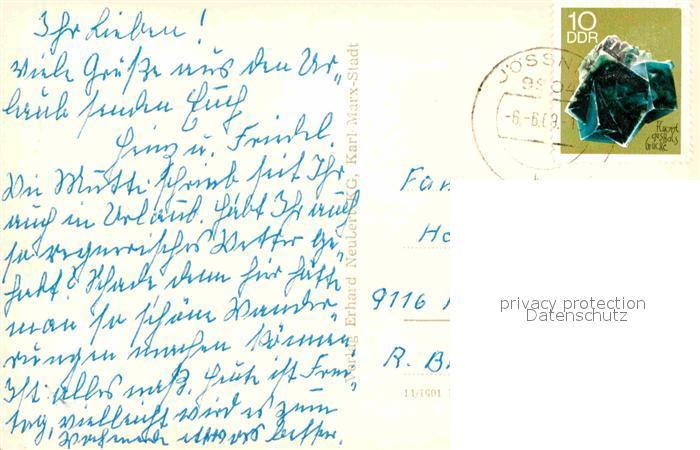 Ihr Lieben!
Viele Grüße aus den Ur-
laub senden Euch
Heinz u. Friedel.
Wie Mutti schrieb seit Ihr
auch in Urlaub. Habt Ihr auch
so regnerisches Wetter ge-
habt? Schade denn hier hätte
man so schöne Wander-
rungen machen können
Ist alles naß. Heute ist Frei-
tag, vielleicht wird es zum
Wochenende etwas besser.
Verlag Erhard Neubert KG, Karl-Marx-Stadt
10
DDR
JÖSSN
9904
-6.-6.69.-1
Fluorit
Fam
Ha
9116
R. B
privacy protection
Datenschutz